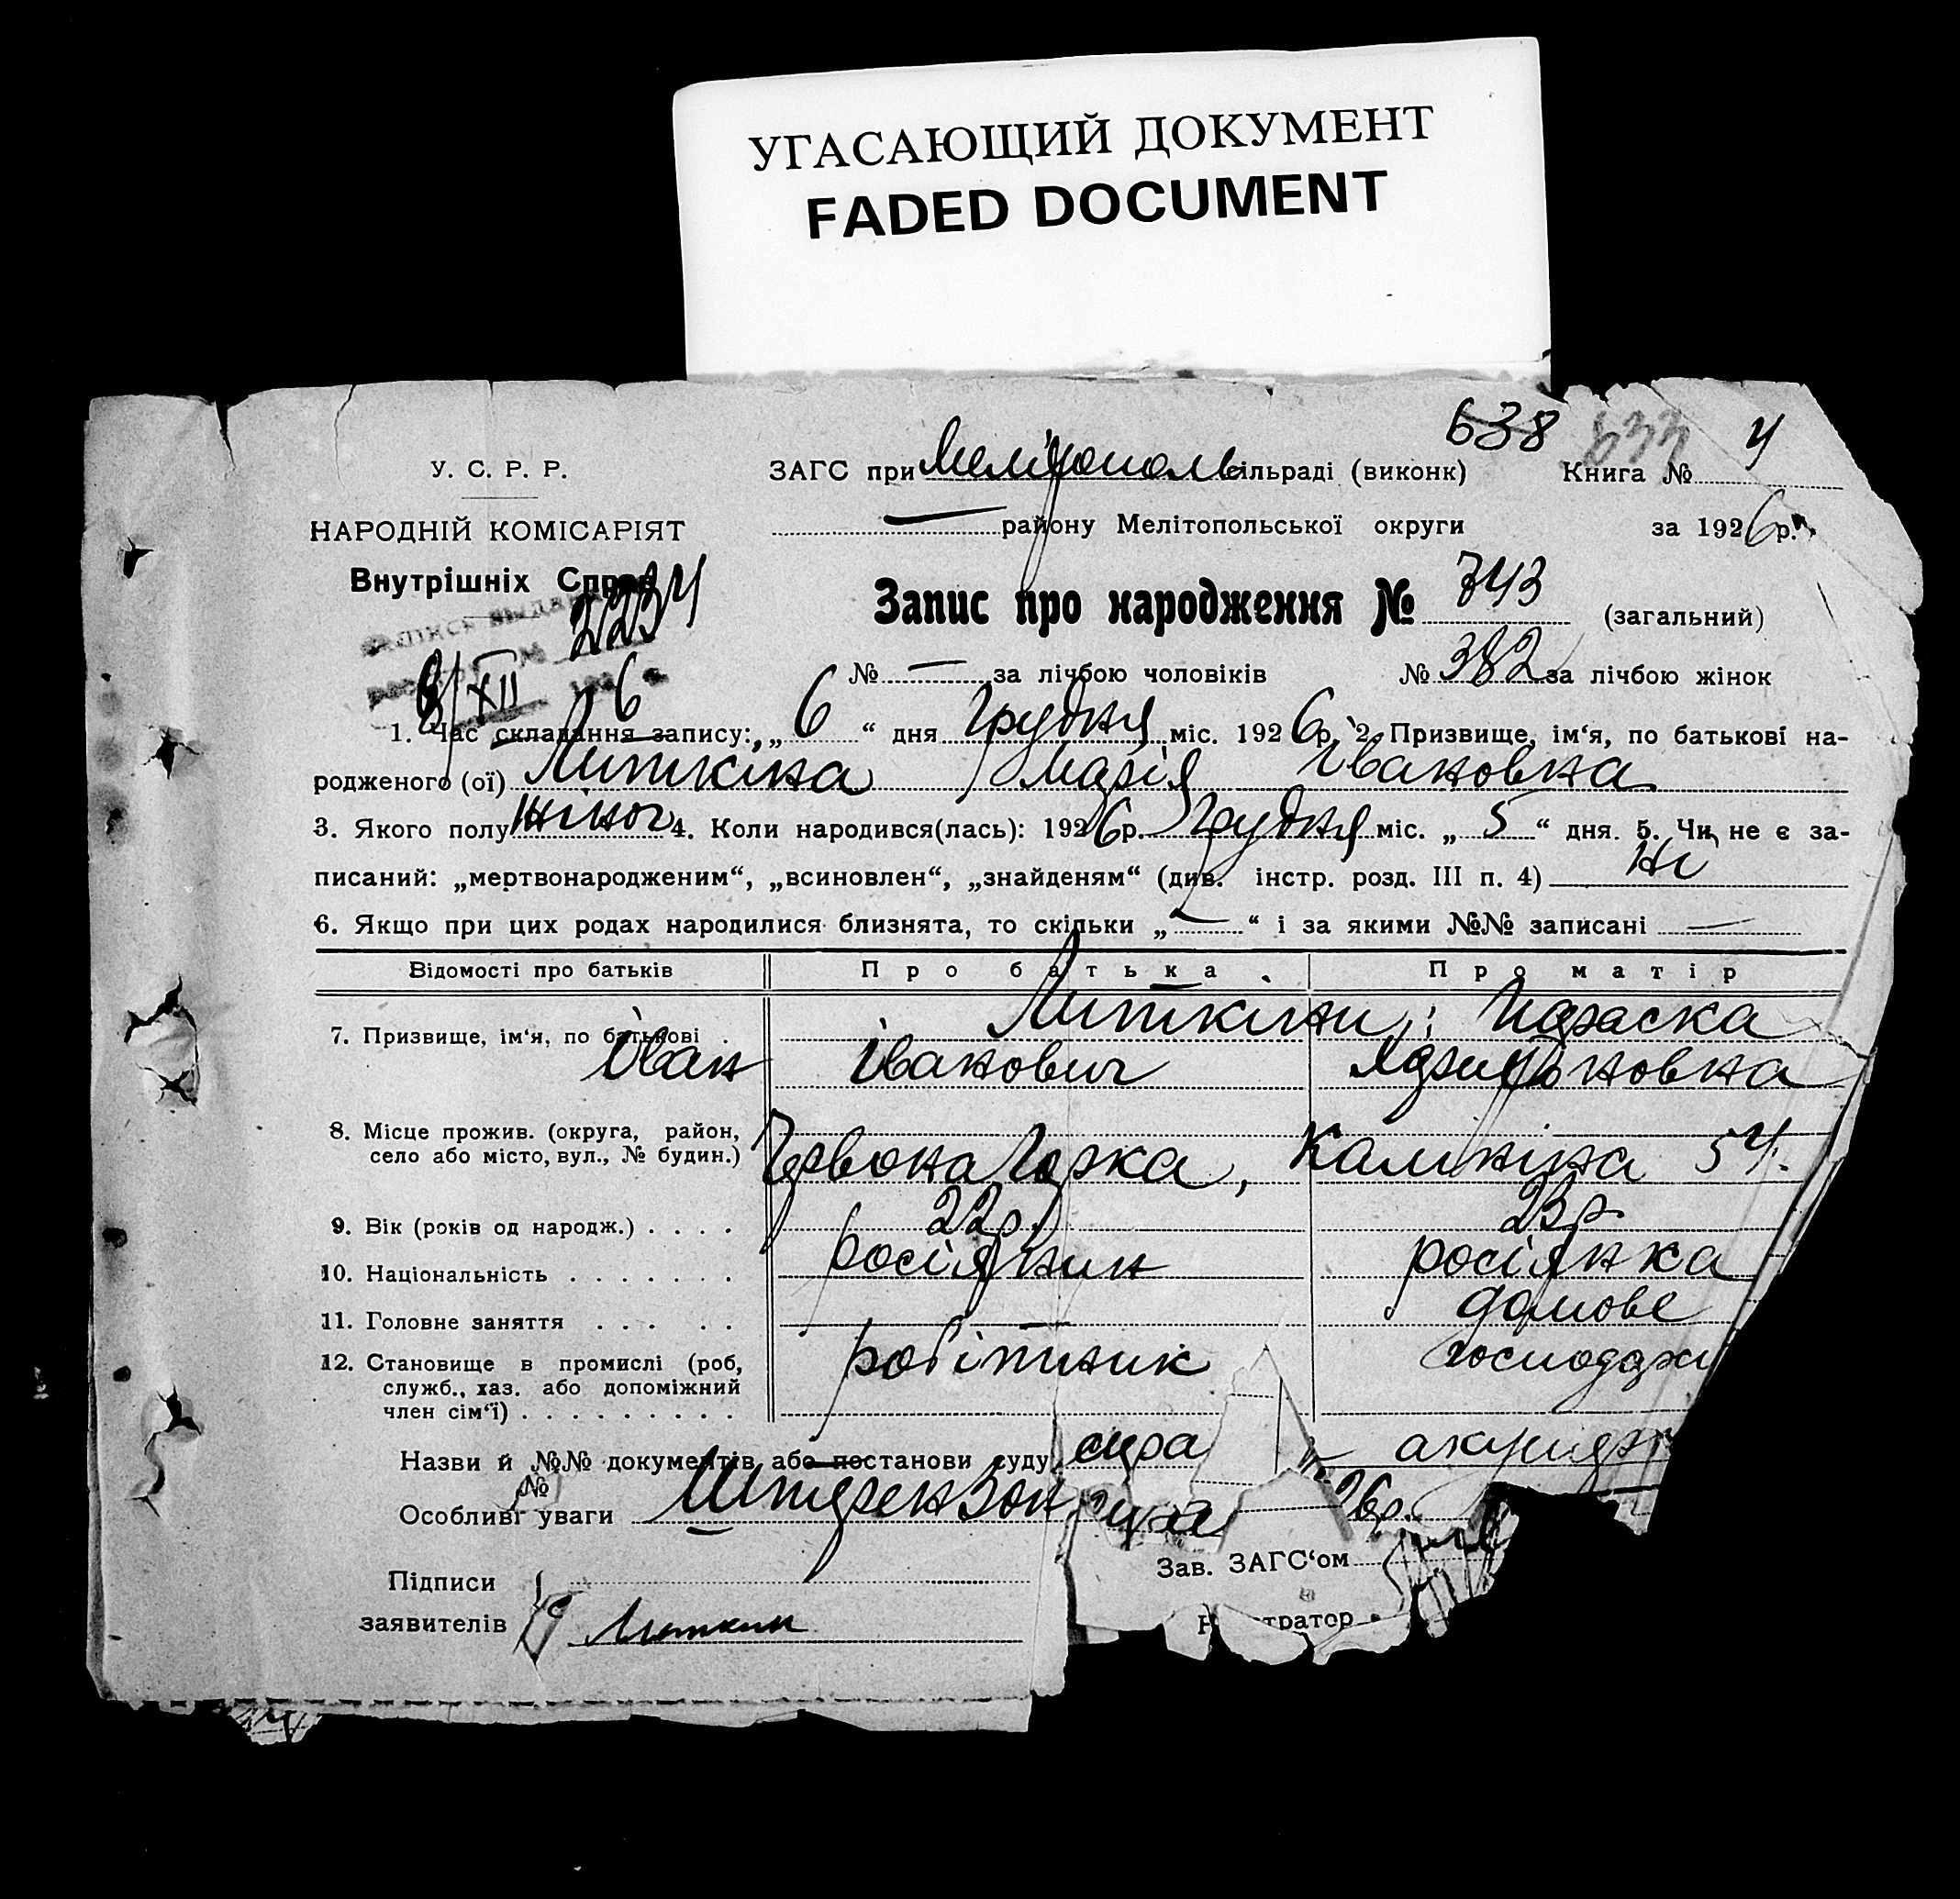 УГАСАЮЩИЙ ДОКУМЕНТ
FADED DOCUMENT
638 633 4
У. С. Р. Р. ЗАГС при Мелітополь сільраді (виконк) Книга №
НАРОДНІЙ КОМІСАРІЯТ — району Мелітопольської округи за 1926 р.
Внутрішніх Справ
2234
Запис про народження № 743 (загальний)
8/XII 6
№ — за лічбою чоловіків № 382 за лічбою жінок
1. Час складання запису: „ 6 “ дня Грудня міс. 1926 р. 2. Призвище, ім‘я, по батькові на-
родженого (ої) Литкіна Марія Івановна
3. Якого полу жіноч 4. Коли народився(лась): 1926 р. Грудня міс. „ 5 “ дня. 5. Чи не є за-
писаний: „мертвонародженим“, „всиновлен“, „знайденям“ (див. інстр. розд. III п. 4) Ні
6. Якщо при цих родах народилися близнята, то скільки „ — “ і за якими №№ записані —
Відомості про батьків Про батька Про матір
Литкіни: Параска
7. Призвище, ім‘я, по батькові
Іван Іванович
8. Місце прожив. (округа, район,
село або місто, вул., № будин.) Червона Горка, Калініна 54.
9. Вік (років од народж.) . . . . 22 р. 23 р.
10. Національність . . . . . . . росіянин росіянка
11. Головне заняття . . . . . — домове
12. Становище в промислі (роб, робітник господар
служб., хаз. або допоміжний
член сім‘ї) . . . . . . . . .
Назви й №№ документів або постанови суду
№
Особливі уваги 26 р.
Зав. ЗАГС‘ом
Підписи
заявителів Литкин